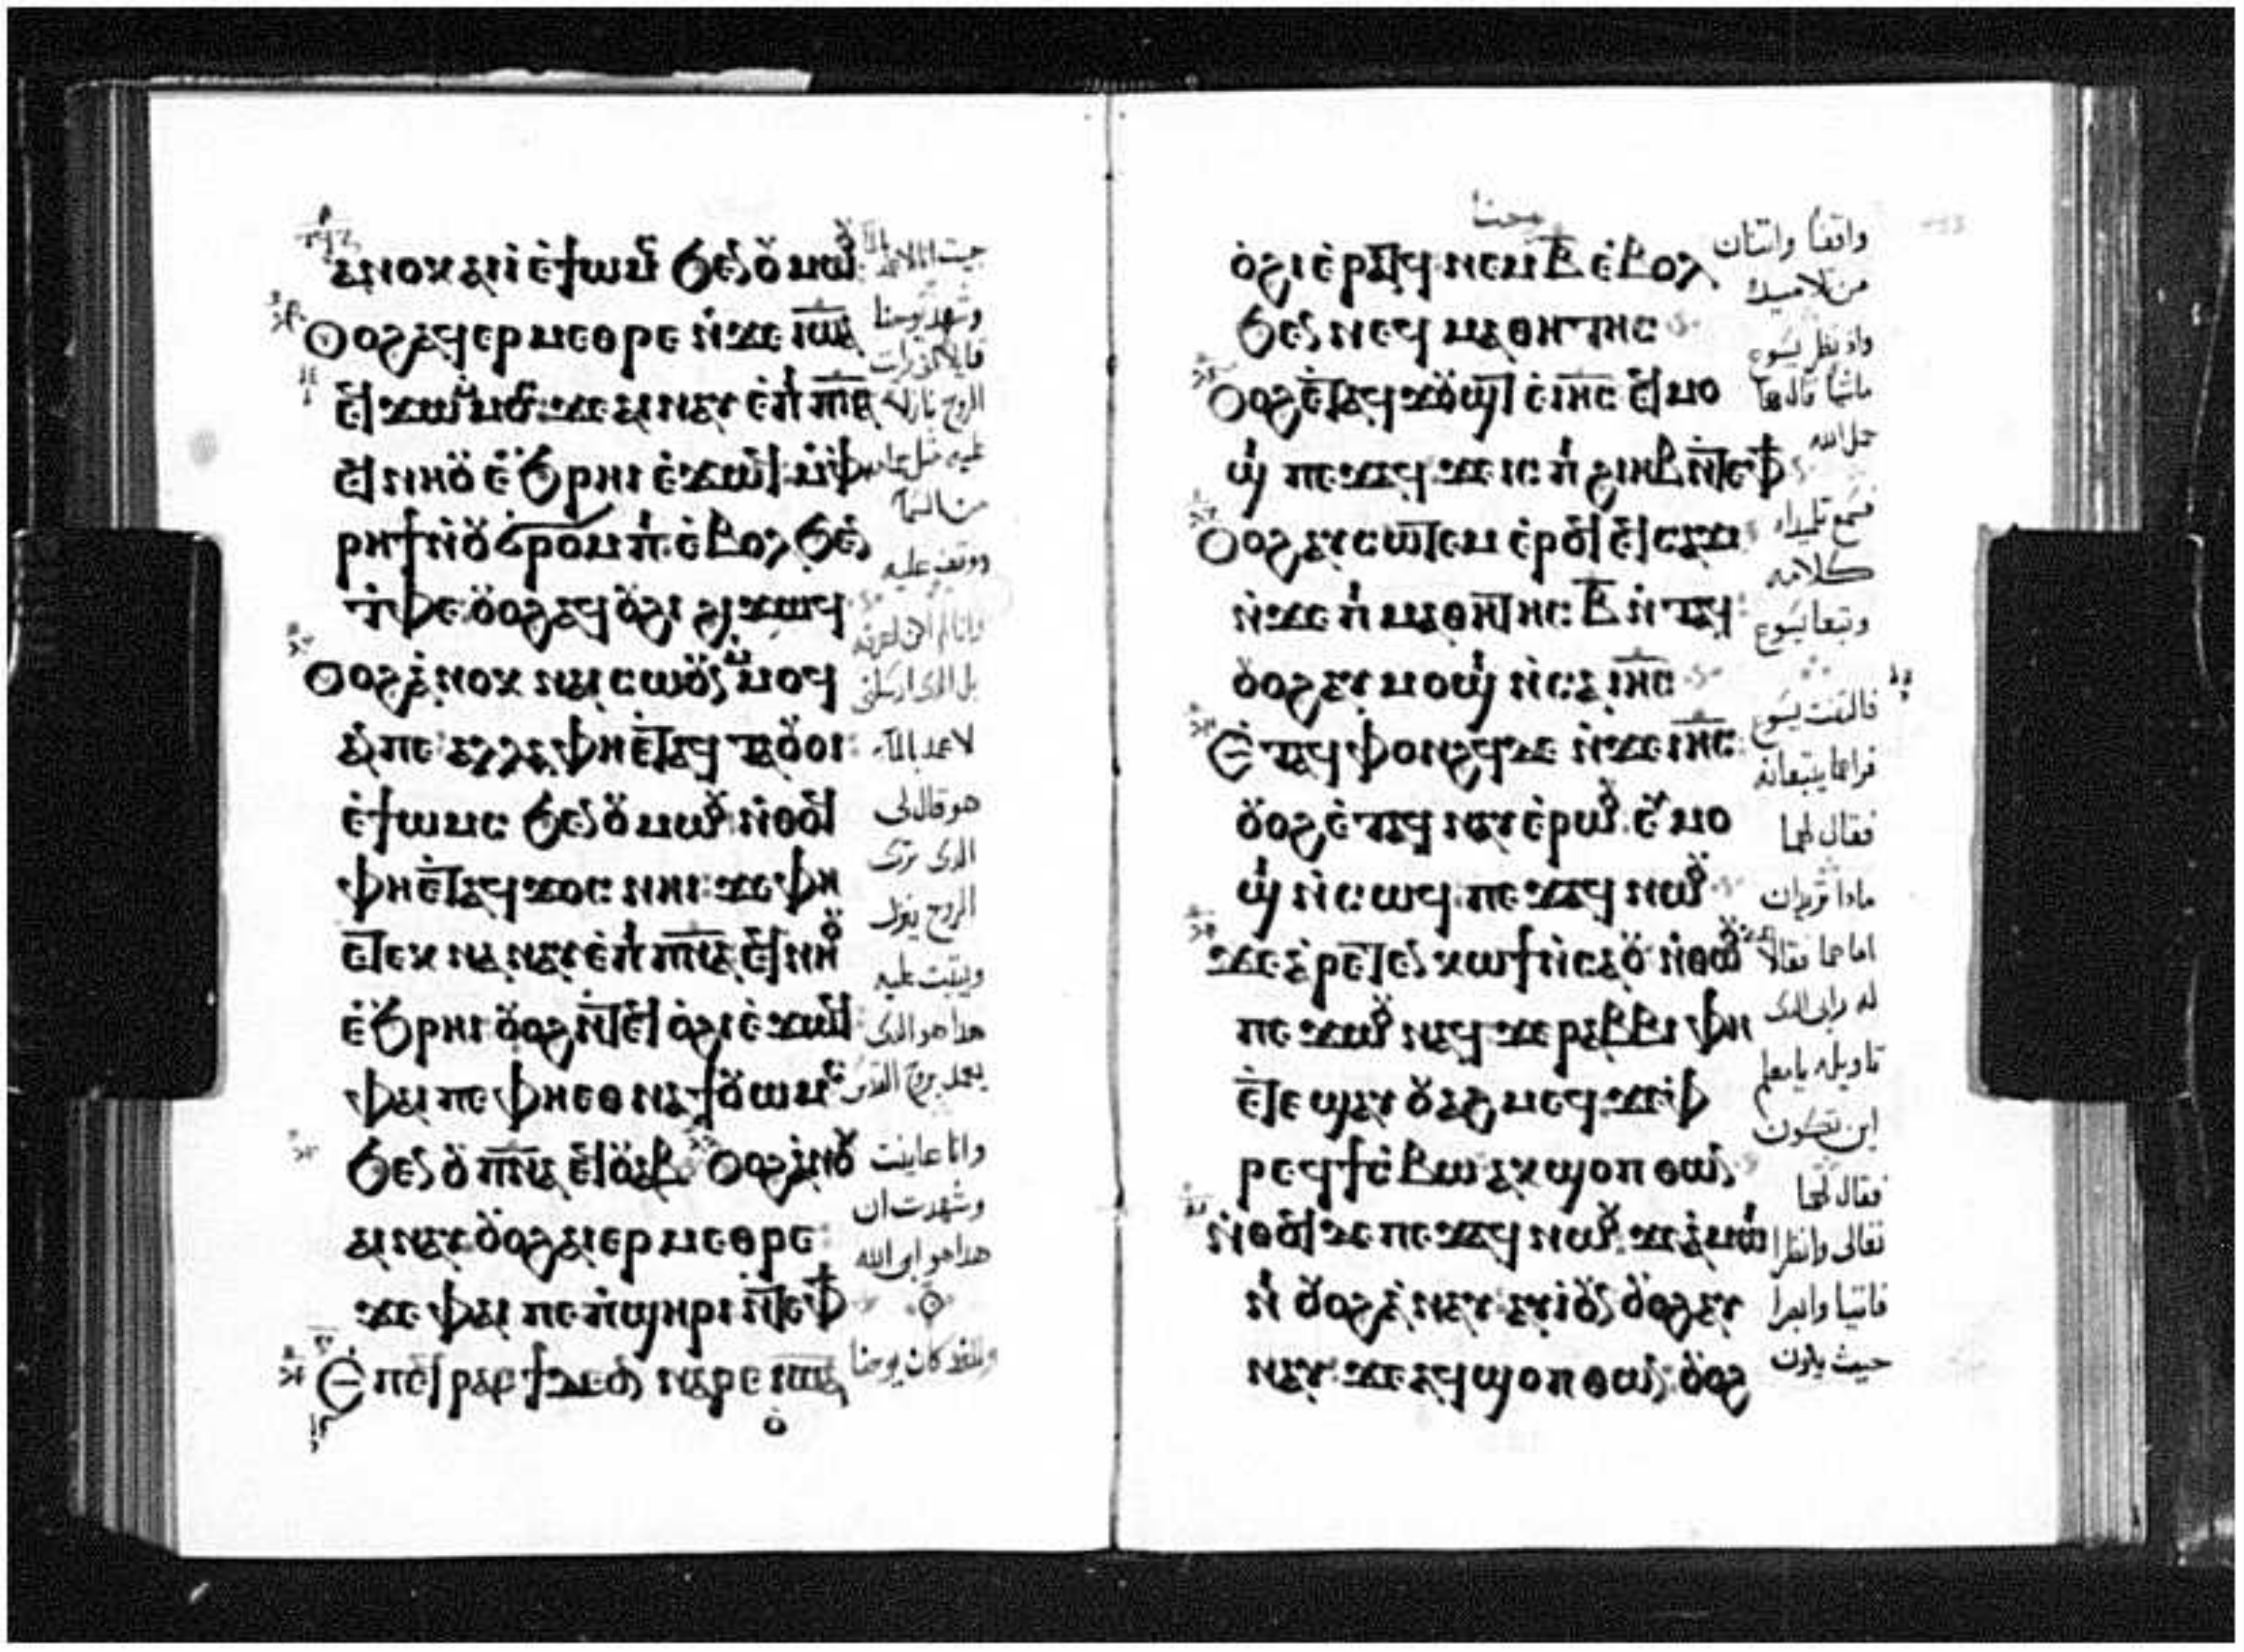 ⲁⲛⲟⲕ ⲁⲓⲓ ⲉϯⲱⲙⲥ ϧⲉⲛ ⲟⲩⲙⲱⲟⲩ
ⲟⲩⲟϩ ⲁϥⲉⲣ ⲙⲉⲑⲣⲉ ⲛ̀ϫⲉ ⲓⲱⲁ
ⲉϥϫⲱ ⲙⲙⲟⲥ ϫⲉ ⲁⲓⲛⲁⲩ ⲉ̀ⲡⲓ ⲡ̅ⲛ̅ⲁ̅
ⲉϥⲛⲏⲟⲩ ⲉ̀ϧⲣⲏⲓ ⲉ̀ϫⲱϥ ⲙ̀ⲫ
ⲣⲏϯ ⲛ̀ⲟⲩϭⲣⲟⲙⲡⲓ ⲉ̀ⲃⲟⲗ ϧⲉⲛ
ⲧ̀ⲫⲉ ⲟⲩⲟϩ ⲁϥⲟ̀ϩⲓ ϩⲓϫⲱϥ
ⲟⲩⲟϩ ⲁ̀ⲛⲟⲕ ⲛⲁⲓⲥⲱⲟⲩⲛ ⲙ̀ⲙⲟϥ
ⲁⲛ ⲡⲉ ⲁⲗⲗⲁ ⲫⲏ ⲉ̀ⲧⲁϥ ⲧⲁⲟⲩⲟⲓ
ⲉ̀ϯⲱⲙⲥ ϧⲉⲛ ⲟⲩⲙⲱⲟⲩ ⲛ̀ⲑⲟϥ
ⲫⲏ ⲉ̀ⲧⲁϥϫⲟⲥ ⲛⲏⲓ ϫⲉ ⲫⲏ
ⲉⲧⲉⲕ ⲛⲁ ⲛⲁⲩ ⲉ̀ⲡⲓ ⲡ̅ⲛ̅ⲁ̅ ⲉϥⲛⲏⲟⲩ
ⲉ̀ϧⲣⲏⲓ ⲟⲩⲟϩ ⲛ̀ⲧⲉϥ ⲟ̀ϩⲓ ⲉ̀ϫⲱϥ
ⲫⲁⲓ ⲡⲉ ⲫⲏⲉⲑ ⲛⲁϯⲱⲙⲥ
ϧⲉⲛ ⲟⲩⲡ̅ⲛ̅ⲁ̅ ⲉϥⲟⲩⲁⲃ ⲟⲩⲟϩ ⲁ̀ⲛⲟⲕ
ⲁⲓⲛⲁⲩ ⲟⲩⲟϩ ⲁⲓⲉⲣ ⲙⲉⲑⲣⲉ
ϫⲉ ⲫⲁⲓ ⲡⲉ ⲡ̀ϣⲏⲣⲓ ⲛ̀ⲧⲉ ⲫϯ
ⲉ̀ⲡⲉϥⲣⲁⲥϯ ⲇⲉ ⲟⲛ ⲛⲁⲣⲉ ⲓⲱⲁ
وشهد يوحنا
الروح نازلا
من السما
ووقف عليه
بل الذى ارسلنى
لاعمد بالماء
هو قال لى
الدى ترى
الروح ينزل
ويثبت عليه
هدا هو الدى
يعمد بروح القدس
وانا عاينت
وشهدت ان
هدا هو ابن الله
وللغد كان يوحنا
يوحنا
ⲟ̀ϩⲓ ⲉ̀ⲣⲁⲧϥ ⲛⲉⲙ ⲃ̅ ⲉ̀ⲃⲟⲗ
ϧⲉⲛ ⲛⲉϥ ⲙⲁⲑⲏⲧⲏⲥ
ⲟⲩⲟϩ ⲉ̀ⲧⲁϥϫⲟⲩϣⲧ ⲉ̀ⲓⲏⲥ ⲉϥⲙⲟ
ϣⲓ ⲡⲉϫⲁϥ ϫⲉ ⲓⲥ ⲡⲓ ϩⲓⲏⲃ ⲛ̀ⲧⲉ ⲫϯ
ⲟⲩⲟϩ ⲁⲩⲥⲱⲧⲉⲙ ⲉ̀ⲣⲟϥ ⲉϥⲥⲁϫⲓ
ⲛ̀ϫⲉ ⲡⲓ ⲙⲁⲑⲏⲧⲏⲥ ⲃ̅ ⲛ̀ⲧⲁϥ
ⲟⲩⲟϩ ⲁⲩⲙⲟϣⲓ ⲛ̀ⲥⲁ ⲓⲏⲥ
ⲉ̀ⲧⲁϥ ⲫⲟⲛϩϥ ⲇⲉ ⲛ̀ϫⲉ ⲓⲏⲥ
ⲟⲩⲟϩ ⲉ̀ⲧⲁϥ ⲛⲁⲩ ⲉ̀ⲣⲱⲟⲩ ⲉⲩⲙⲟ
ϣⲓ ⲛ̀ⲥⲱϥ ⲡⲉϫⲁϥ ⲛⲱⲟⲩ
ϫⲉ ⲁ̀ⲣⲉⲧⲉⲛ ⲕⲱϯ ⲛ̀ⲥⲁ ⲟⲩ ⲛ̀ⲑⲱⲟⲩ ⲇⲉ
ⲡⲉϫⲱⲟⲩ ⲛⲁϥ ϫⲉ ⲣⲁⲃⲃⲓ ⲫⲏ
ⲉ̀ⲧⲉ ϣⲁⲩ ⲟⲩⲁϩⲙⲉϥ ϫⲉ ⲫ
ⲣⲉϥϯⲥ̀ⲃⲱ ⲁⲕϣⲟⲡ ⲑⲱⲛ
ⲛ̀ⲑⲟϥ ⲇⲉ ⲡⲉϫⲁϥ ⲛⲱⲟⲩ ϫⲉ ⲁ̀ⲙⲱⲓ
ⲛⲓ ⲟⲩⲟϩ ⲁ̀ⲛⲁⲩ ⲁⲩⲓ̀ ⲟⲩⲛ ⲟⲩⲟϩ ⲁⲩ
ⲛⲁⲩ ϫⲉ ⲁϥϣⲟⲡ ⲑⲱⲛ ⲟⲩⲟϩ
واقفا واثنان
من تلاميده
واد نظر يسوع
ماشيا قال هدا
حمل الله
فسمع تلميداه
كلامه
وتبعا يسوع
فالتفت يسوع
فراهما يتبعانه
فقال لهما
مادا تريدان
اما هما فقالا
له رابى الدى
تاويله يا معلم
اين تكون
فقال لهما
تعالى وانظرا
فاتيا وابصرا
حيث يكون